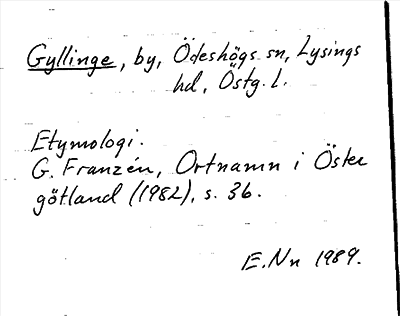 Gyllinge, by, Ödeshögs sn, Lysings
hd, Östg. l.
Etymologi.
G. Franzén, Ortnamn i Öster
götland (1982), s. 36.
E.Nn 1989.